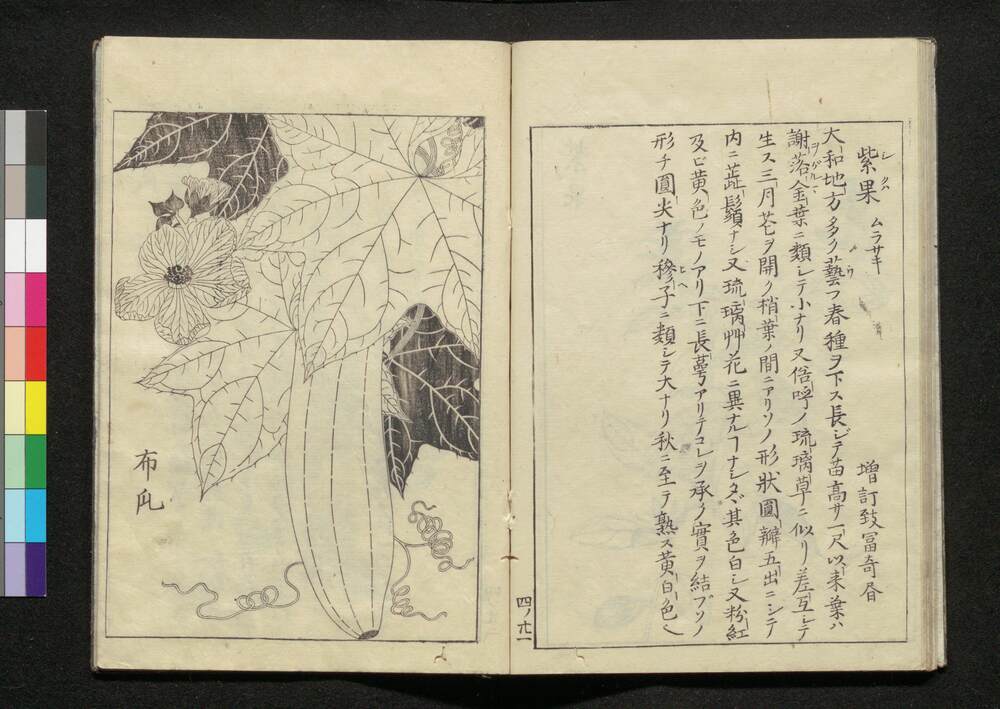 紫果 ムラサキ 増訂致冨奇書
大和地方多ク藝フ春種ヲ下ス長ジテ苗高サ一尺以来葉ハ
謝落金葉ニ類シテ小ナリ又俗呼ノ琉璃草ニ似リ差互シテ
生ス三月花ヲ開ク梢葉ノ間ニアリソノ形狀圓瓣五出ニシテ
内ニ蕋鬚ナシ又琉璃艸花ニ異ナルヿナシタヾ其色白シ又粉紅
及ヒ黄色ノモノアリ下ニ長蕚アリテコレヲ承ク實ヲ結ブソノ
形チ圓尖ナリ穇子ニ類シテ大ナリ秋ニ至テ熟ス黄白色
四ノ
布